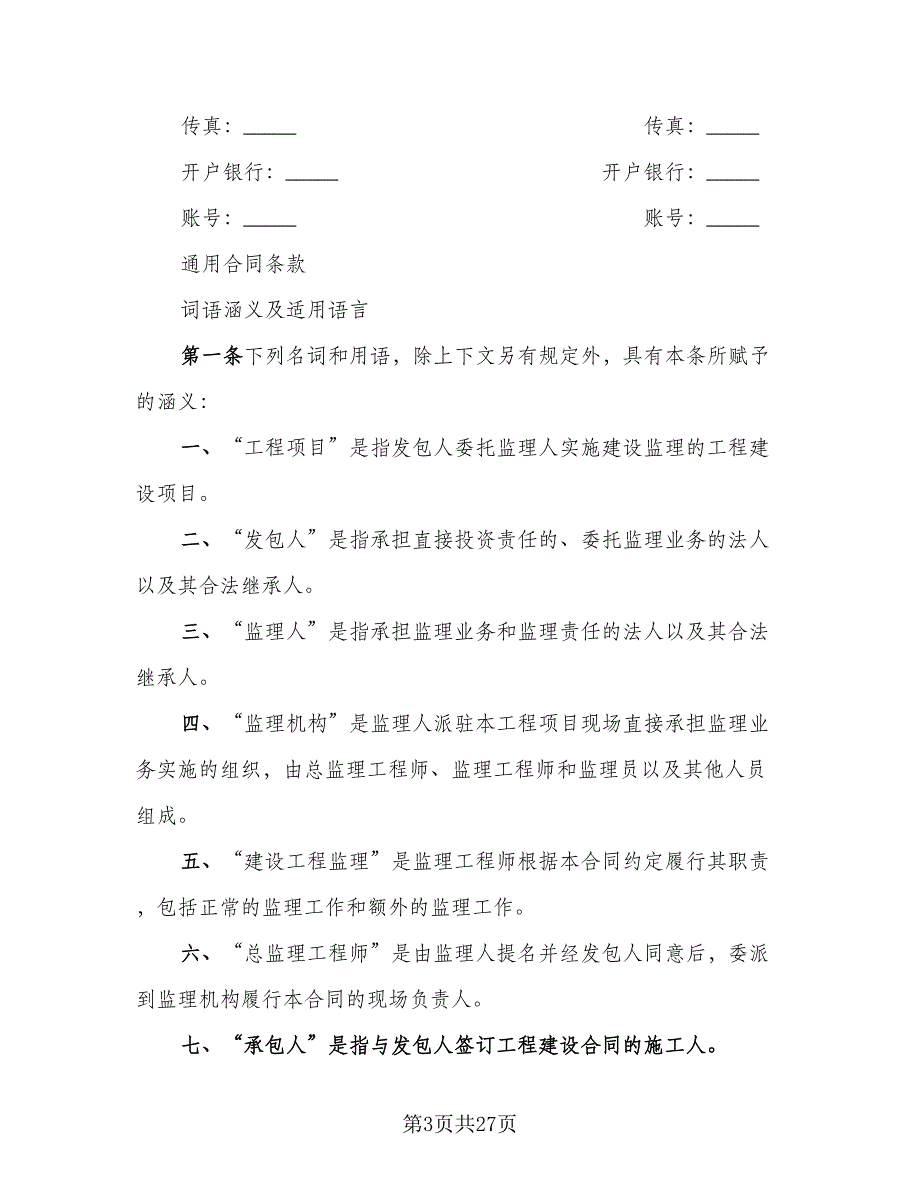 传真：_____ 传真：_____
开户银行：_____ 开户银行：_____
账号：_____ 账号：_____
通用合同条款
词语涵义及适用语言
第一条下列名词和用语，除上下文另有规定外，具有本条所赋予
的涵义：
一、“工程项目”是指发包人委托监理人实施建设监理的工程建
设项目。
二、“发包人”是指承担直接投资责任的、委托监理业务的法人
以及其合法继承人。
三、“监理人”是指承担监理业务和监理责任的法人以及其合法
继承人。
四、“监理机构”是监理人派驻本工程项目现场直接承担监理业
务实施的组织，由总监理工程师、监理工程师和监理员以及其他人员
组成。
五、“建设工程监理”是监理工程师根据本合同约定履行其职责
，包括正常的监理工作和额外的监理工作。
六、“总监理工程师”是由监理人提名并经发包人同意后，委派
到监理机构履行本合同的现场负责人。
七、“承包人”是指与发包人签订工程建设合同的施工人。
第3页共27页